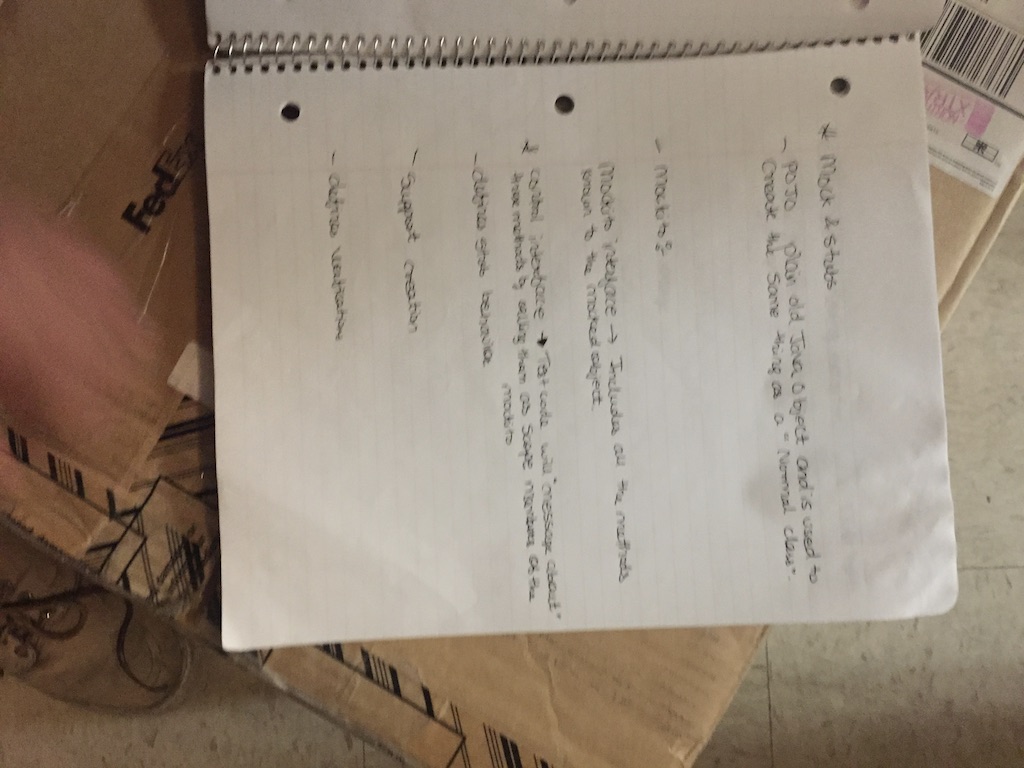 # Mock & stubs
- POJO plain old Java Object and is used to
Create the Same thing as a "Normal class".
- Mockito?
Mockito interface → Includes all the methods
known to the mocked object.
# Control interface → Test code will "message about"
these methods by calling them as Scope members of the
mockito
- defines stub behavior
- Support creation
- defines verifications
FedEx